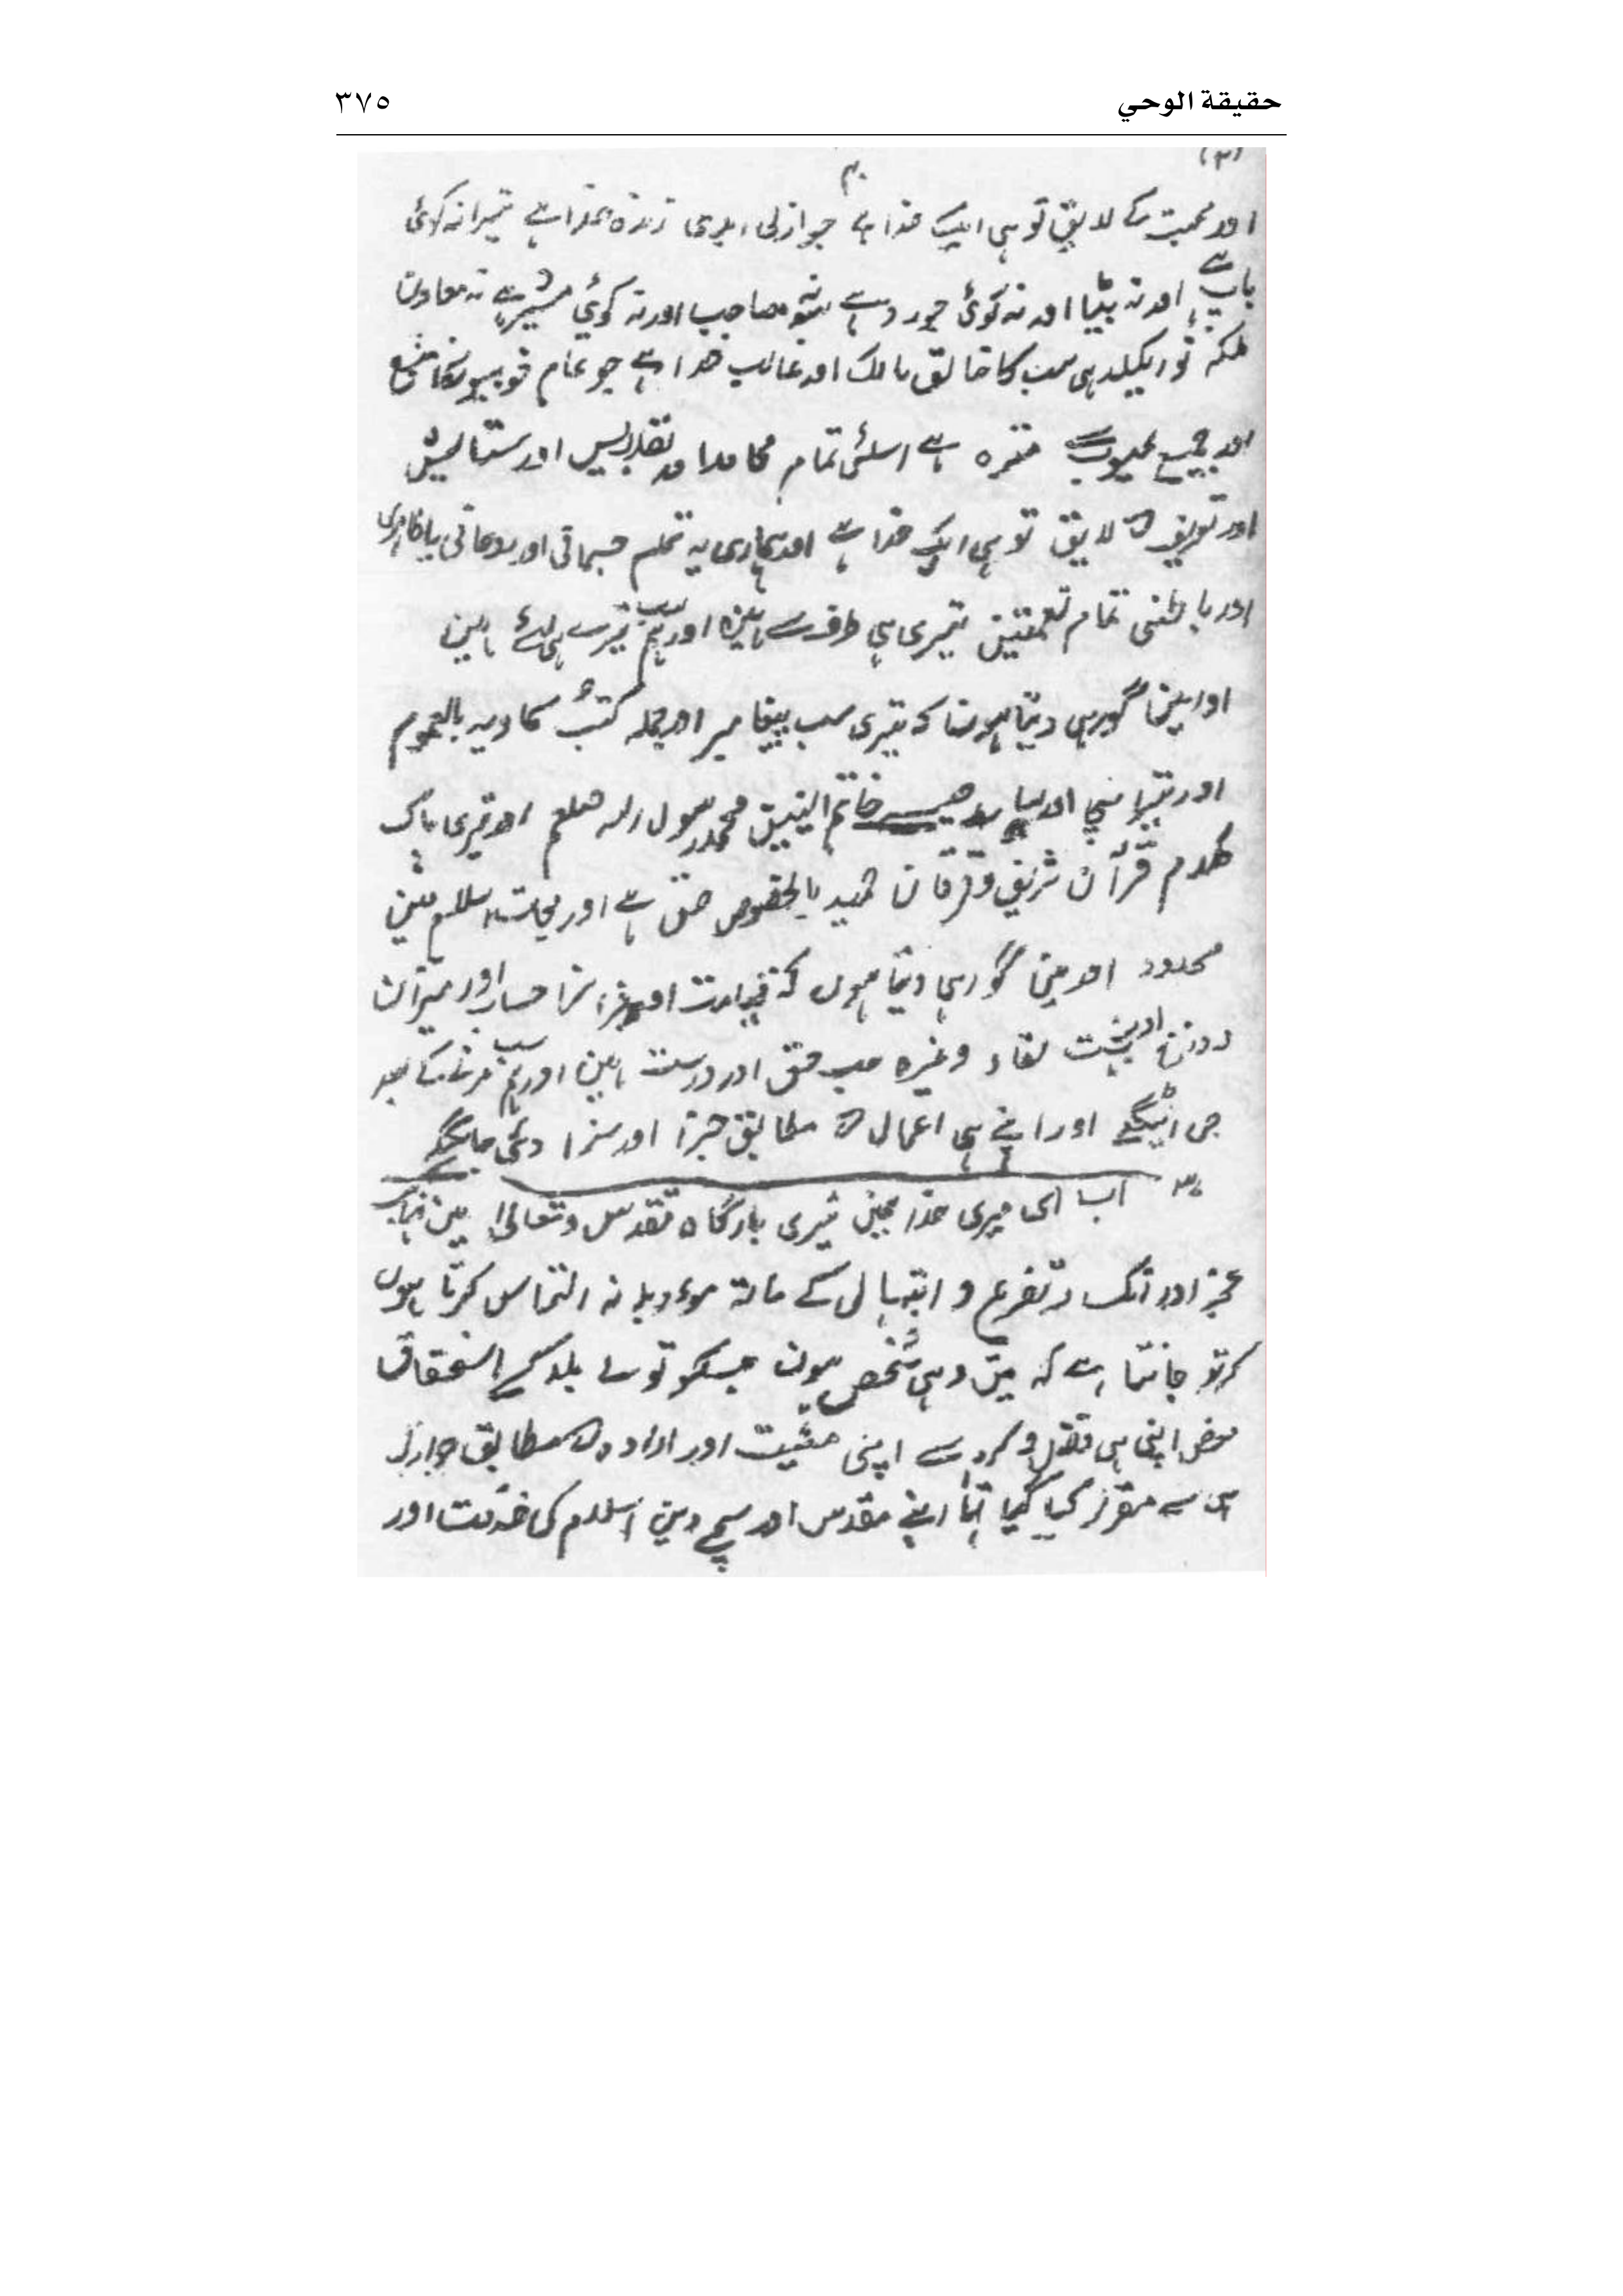 حقيقة الوحي ٣٧٥
(٣)
اور محبت کے لایق تو ہی ایک خدا ہے جو ازلی ابدی زندہ خدا ہے تیرا نہ کوئی
باپ ہے اور نہ بیٹا اور نہ کوئی جورو ہے نہ مصاحب اور نہ کوئی مشیر ہے نہ معاون
بلکہ تو اکیلا ہی سب کا خالق مالک اور غالب خدا ہے جو تمام خوبیونکا منبع
اور جمیع عیوب سے منزہ ہے اسلئے تمام محامد اور تقدیس اور ستایش
اور تعریف کے لایق تو ہی ایک خدا ہے اور ہماری یہ تمام جسمانی اور روحانی یا ظاہری
اور باطنی تمام نعمتین تیری ہی طرف سے ہین اور ہم سب تیرے ہی لئے ہین
اور مین گواہی دیتا ہون کہ تیری سب پیغامبر اور جملہ کتب سماویہ بالعموم
اور تیرا نبی اور خاتم النبیین محمد رسول اللہ صلعم اور تیری پاک
کلام قرآن شریف و فرقان حمید بالخصوص حق ہے اور نجات اسلام مین
محدود اور مین گواہی دیتا ہوں کہ قیامت اور جزا سزا حساب اور میزان
دوزخ اور بہشت لقاء وغیرہ سب حق اور درست ہین اور ہم سب مرنے کے بعد
جی اٹھینگے اور اپنے ہی اعمال کے مطابق جزا اور سزا دئے جاینگے
اب اے میری خدا مین تیری بارگاہ تقدس و تعالیٰ مین نہایت
عجز اور انکسار تضرع و ابتہالی کے ساتھ مؤدبانہ التماس کرتا ہوں
کہ تو جانتا ہے کہ مین وہی شخص ہون جسکو تو نے بلا کسی استحقاق
محض اپنی ہی فضل و کرم سے اپنی مشیت اور ارادہ کے مطابق جو ازل
ہی سے مقرر کیا گیا تھا اپنے مقدس اور سچے دین اسلام کی خدمت اور